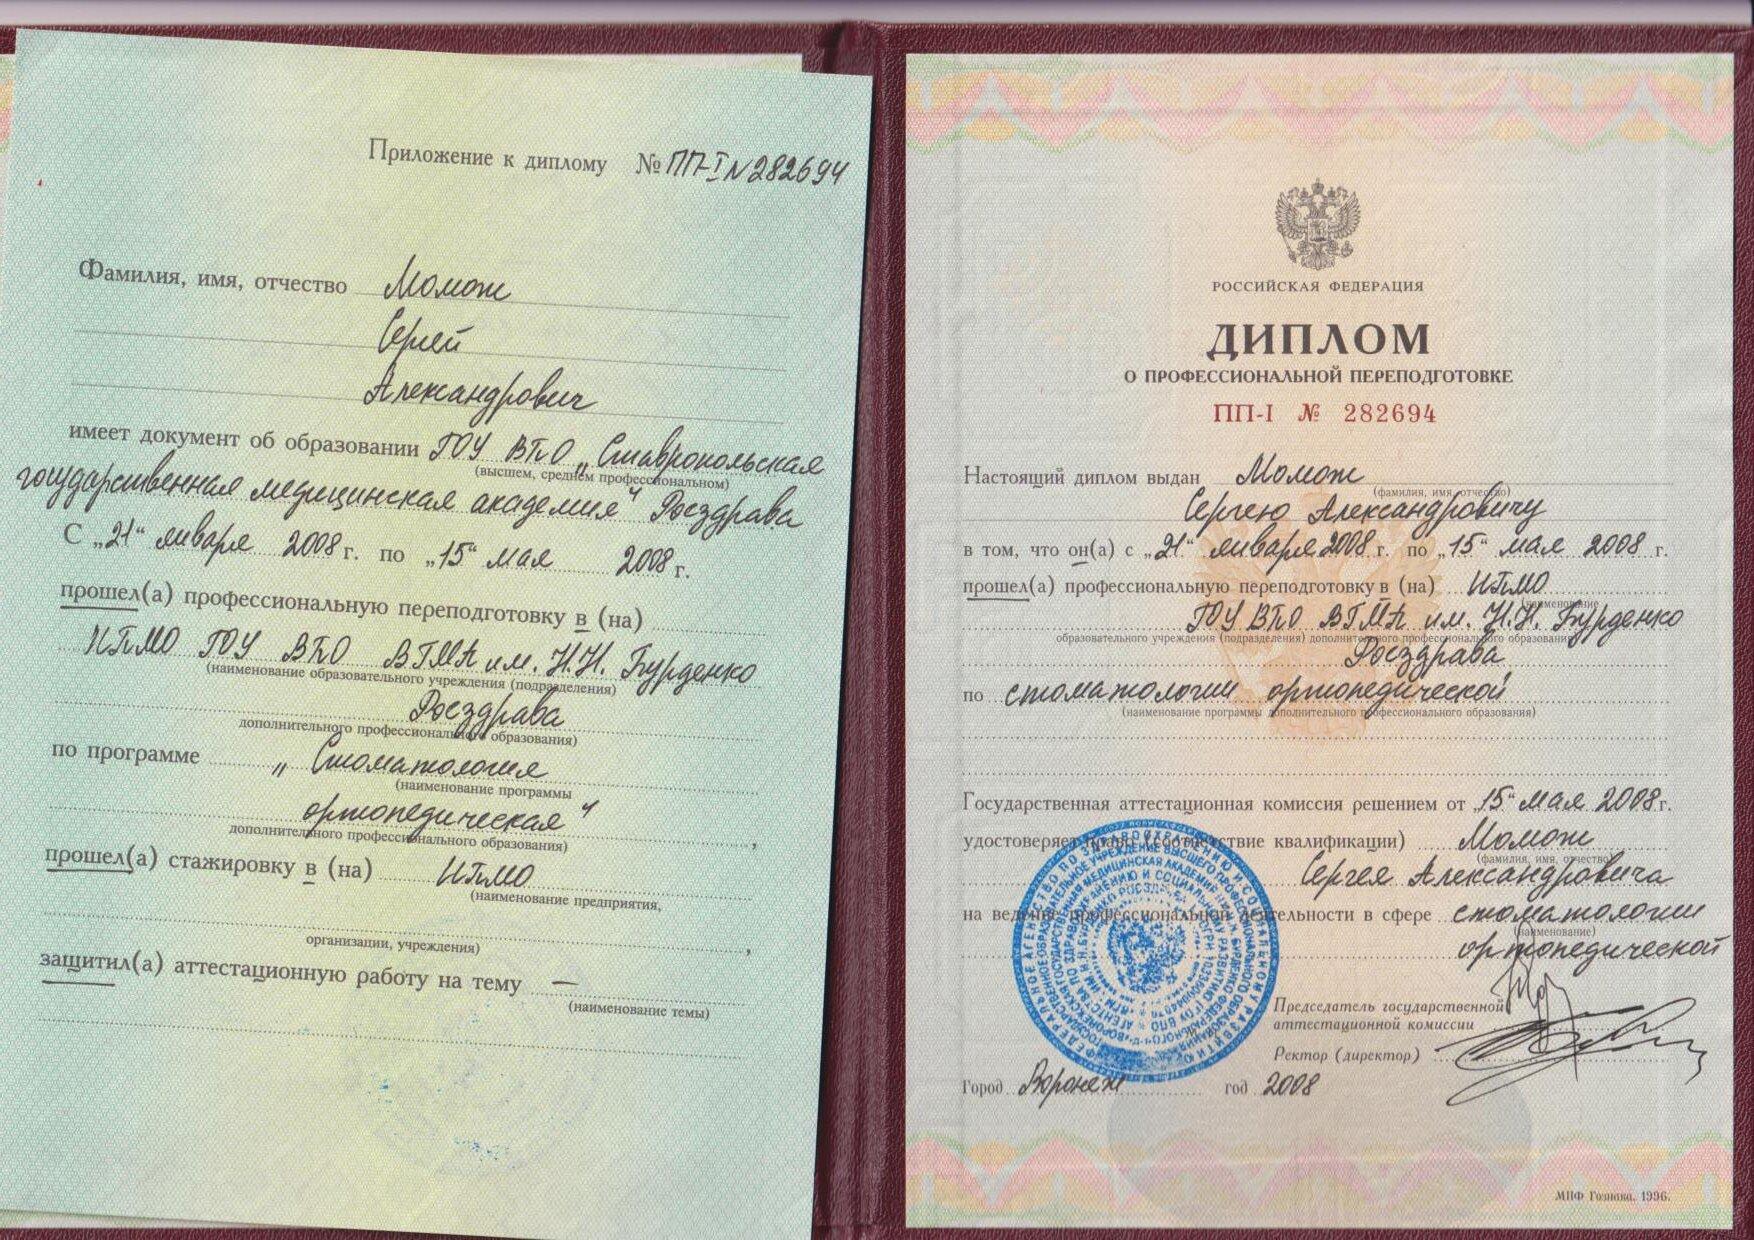 Приложение к диплому № ПП-I N 282694
Фамилия, имя, отчество Момот
Сергей
Александрович
имеет документ об образовании ГОУ ВПО „Ставропольская
(высшем, среднем профессиональном)
государственная медицинская академия" Росздрава
С „21" января 2008 г. по „15" мая 2008 г.
прошел(а) профессиональную переподготовку в (на)
ИПМО ГОУ ВПО ВГМА им. Н.Н. Бурденко
(наименование образовательного учреждения (подразделения)
Росздрава
дополнительного профессионального образования)
по программе „Стоматология
(наименование программы
ортопедическая",
дополнительного профессионального образования)
прошел(а) стажировку в (на) ИПМО
(наименование предприятия,
организации, учреждения)
защитил(а) аттестационную работу на тему —
(наименование темы)
РОССИЙСКАЯ ФЕДЕРАЦИЯ
ДИПЛОМ
О ПРОФЕССИОНАЛЬНОЙ ПЕРЕПОДГОТОВКЕ
ПП-I № 282694
Настоящий диплом выдан Момот
(фамилия, имя, отчество)
Сергею Александровичу
в том, что он(а) с „21" января 2008 г. по „15" мая 2008 г.
прошел(а) профессиональную переподготовку в (на) ИПМО
(наименование
ГОУ ВПО ВГМА им. Н.Н. Бурденко
образовательного учреждения (подразделения) дополнительного профессионального образования)
Росздрава
по стоматологии ортопедической
(наименование программы дополнительного профессионального образования)
Государственная аттестационная комиссия решением от „15" мая 2008 г.
удостоверяет право (соответствие квалификации) Момот
(фамилия, имя, отчество)
Сергея Александровича
на ведение профессиональной деятельности в сфере стоматологии
(наименование)
ортопедической
Председатель государственной
аттестационной комиссии
Ректор (директор)
Город Воронеж год 2008
МПФ Гознака. 1996.